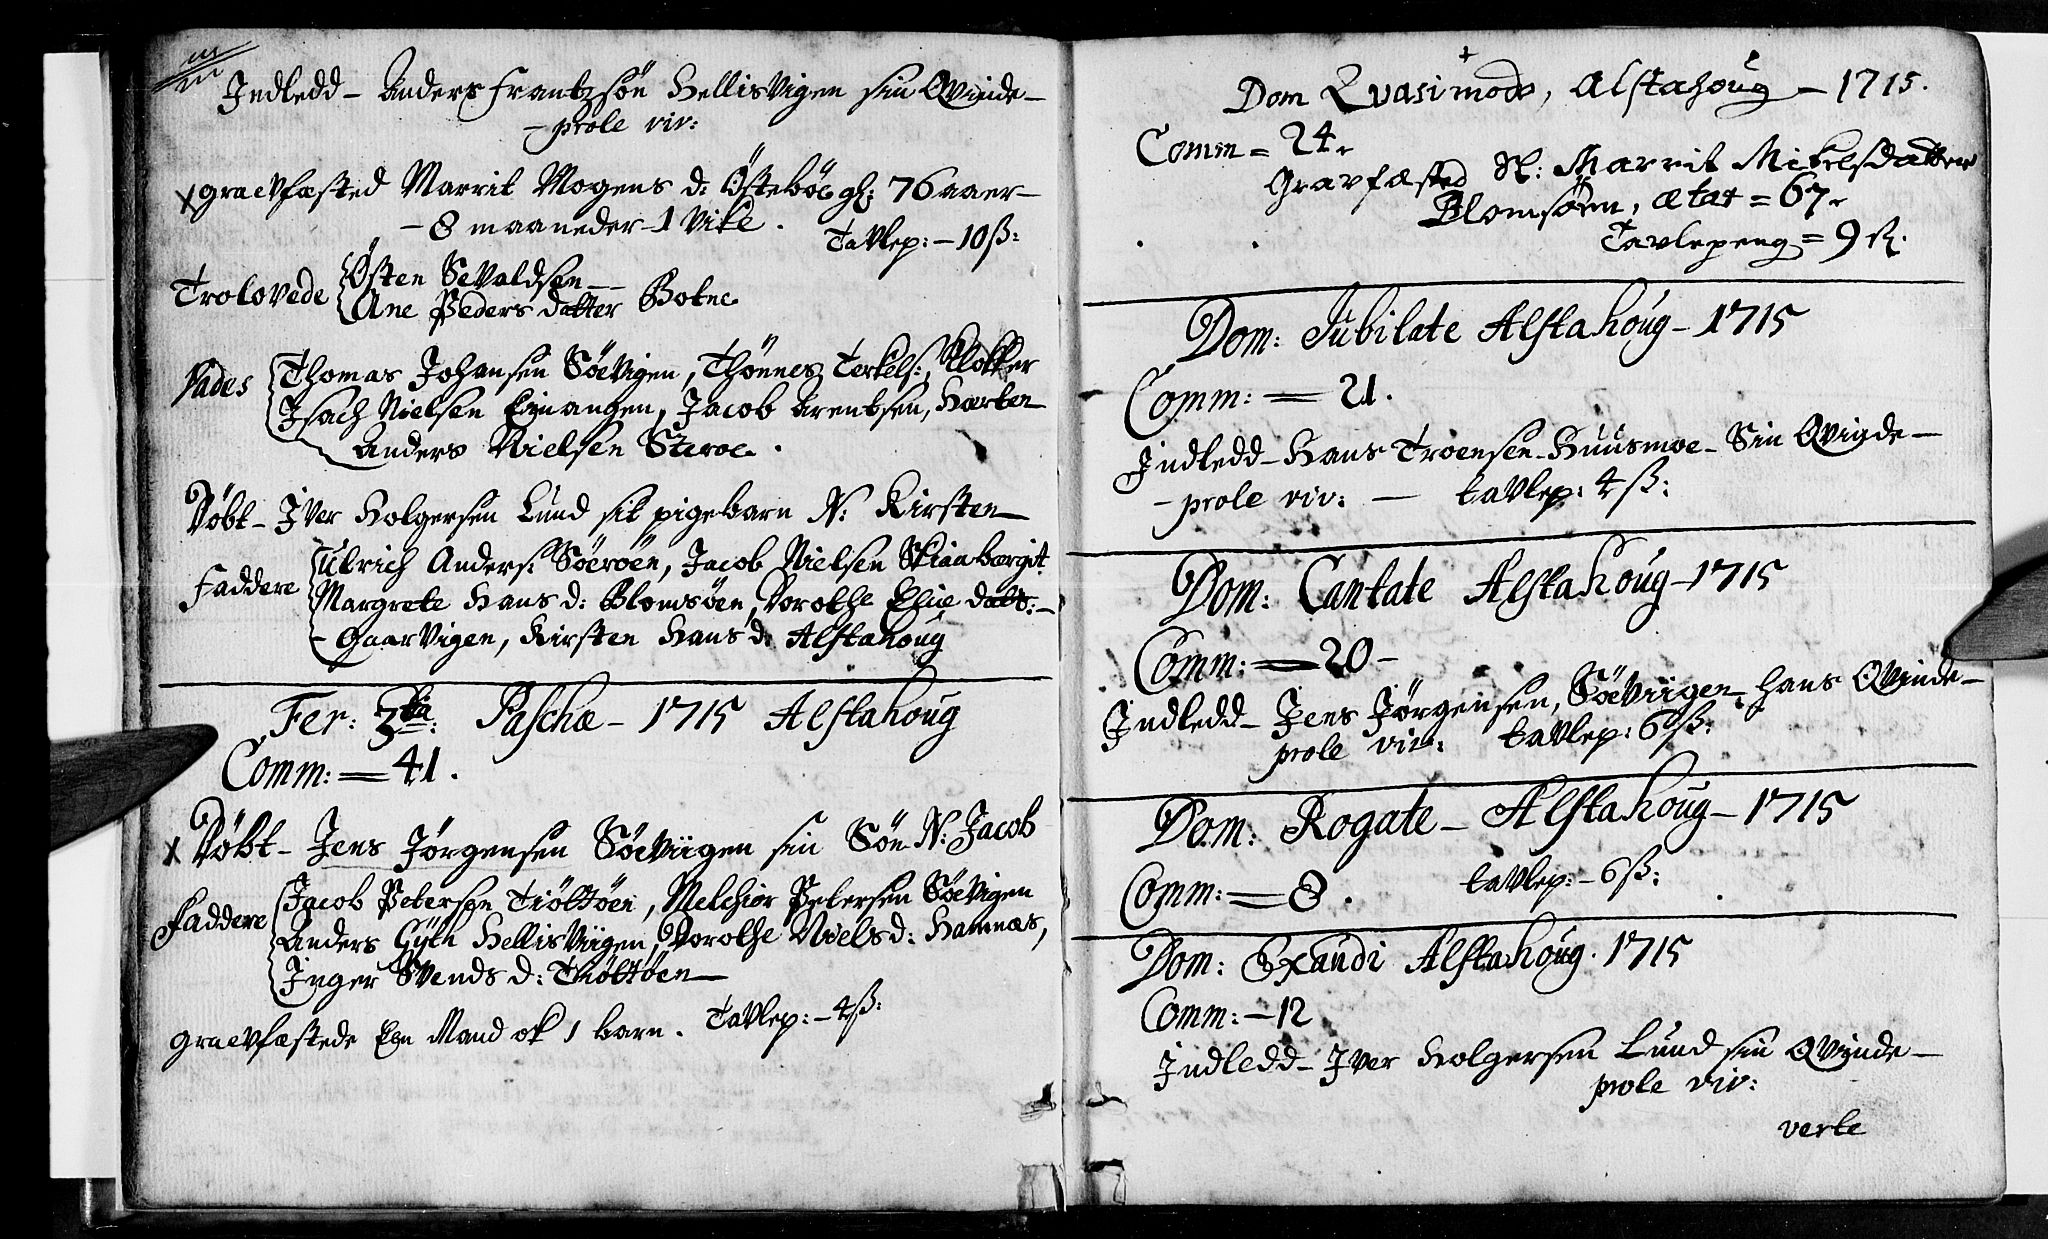 Indledd – Anders Frantzsön HellisVigen sin Qvinde –
– prole viv:
graevfæsted Marrit Mogens d: Östeböe gl: 76 aaer –
– 8 maaneder – 1 Vike. Tavlep: – 10 ß:
Trolovede Östen SeValdsen –
Ane Peders datter Botne
Vades Thomas Johansen SöeVigen, Thönnes Terkels:, Klokker
Isach Nielsen Einangen, Jacob Arentsen, Hærten
Anders Nielsen
Döbt – IVer Holgersen Lund sit pigebarn N: Kirsten –
Faddere Ulrich Anders: Söeröen, Jacob Nielsen
Margrete Hans d: Blomsöen, Dorothe Elie datt: –
– GaarVigen, Kirsten Hans d: Alstahoug
Fer: 3tia: Paschæ – 1715 Alstahoug
Comm: = 41.
Döbt – Jens Jörgensen SöeViigen sin Sön N: Jacob
Faddere Jacob Petersen Tiöttöen, Melchior Petersen SöeVigen
Anders Gytn HellisViigen, Dorothe Niels d: Hamnæs,
Inger Svends d: Tiöttöen –
graevfæstede Een Mand ok 1 barn. Tavlep: – 4 ß:
Dom Qvasimodo, Alstahoug – 1715.
Comm = 24.
Gravfæsted Sl: Marrit Mikelsdatter
Blomsöen, ætat = 67.
Tavlepeng = 9 ß.
Dom: Jubilate Alstahoug – 1715
Comm: = 21.
Indledd – Hans Troensen Huusmoe – Sin Qvinde –
– prole viv: – tavlep: 4 ß:
Dom: Cantate Alstahoug – 1715
Comm: = 20 –
Indledd – Jens Jörgensen, SöeViigen – hans Qvinde –
prole viv: tavlep: 6 ß:
Dom: Rogate – Alstahoug – 1715
Comm: = 8. tavlep: – 6 ß:
Dom: Exaudi Alstahoug. 1715
Comm: – 12
Indledd – IVer Holgersen Lund sin Qvinde –
prole viv:
verte